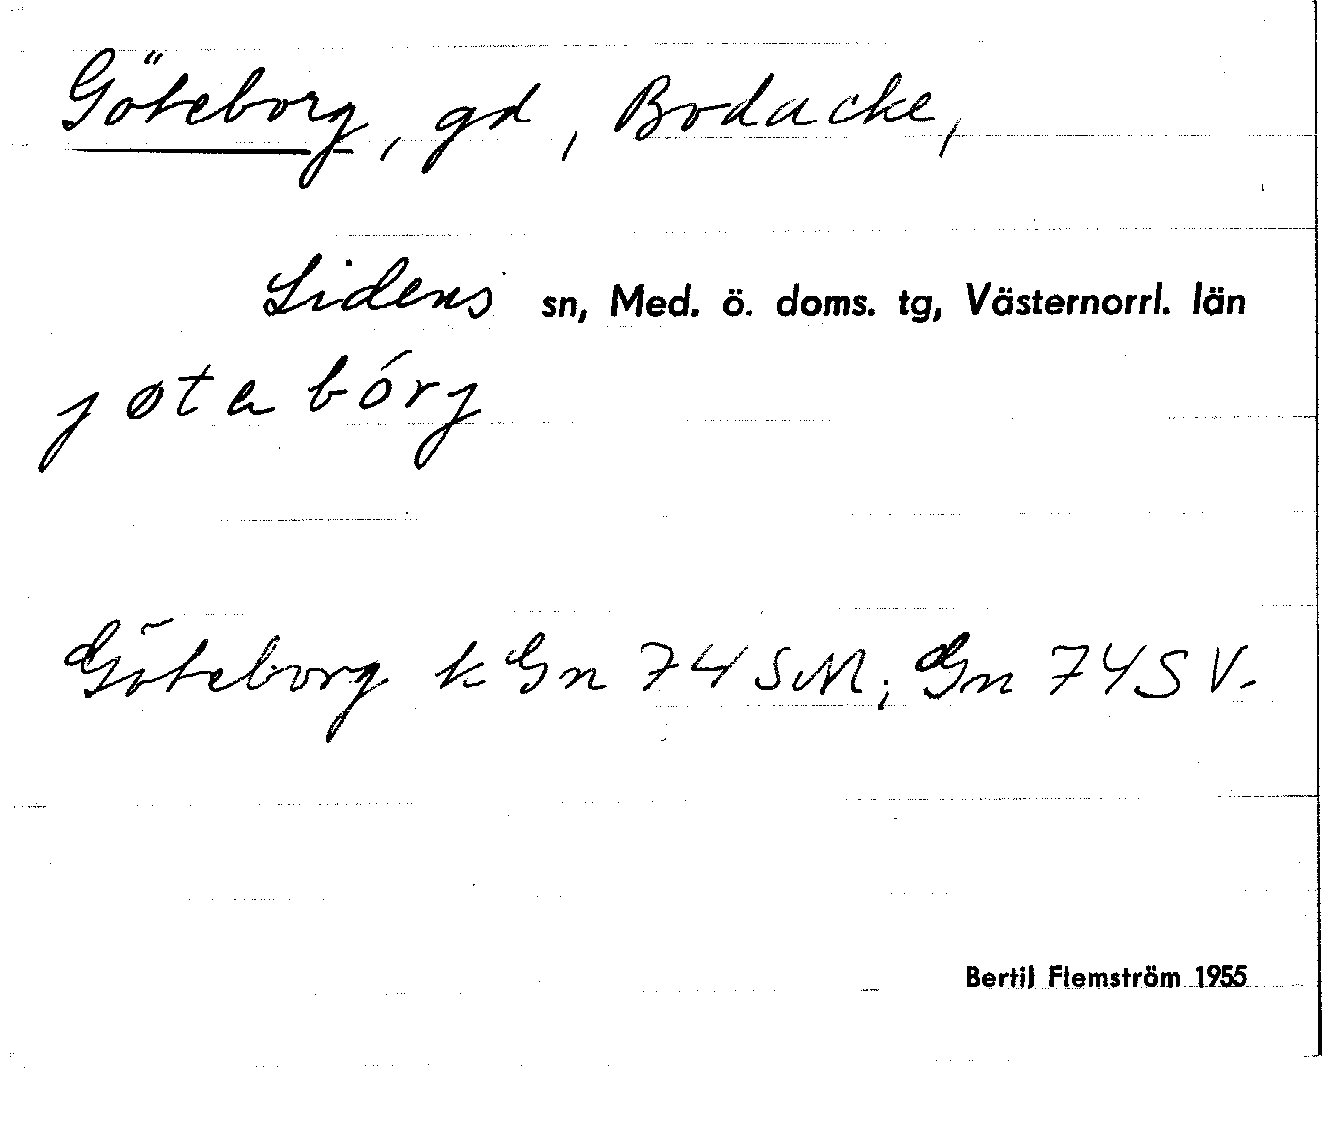 Göteborg, gd, Bodacke,
Lidens sn, Med. ö. doms. tg, Västernorrl. län
jøta bórj
Göteborg k Gn 74 SM; Gn 74 SV.
Bertil Flemström 1955